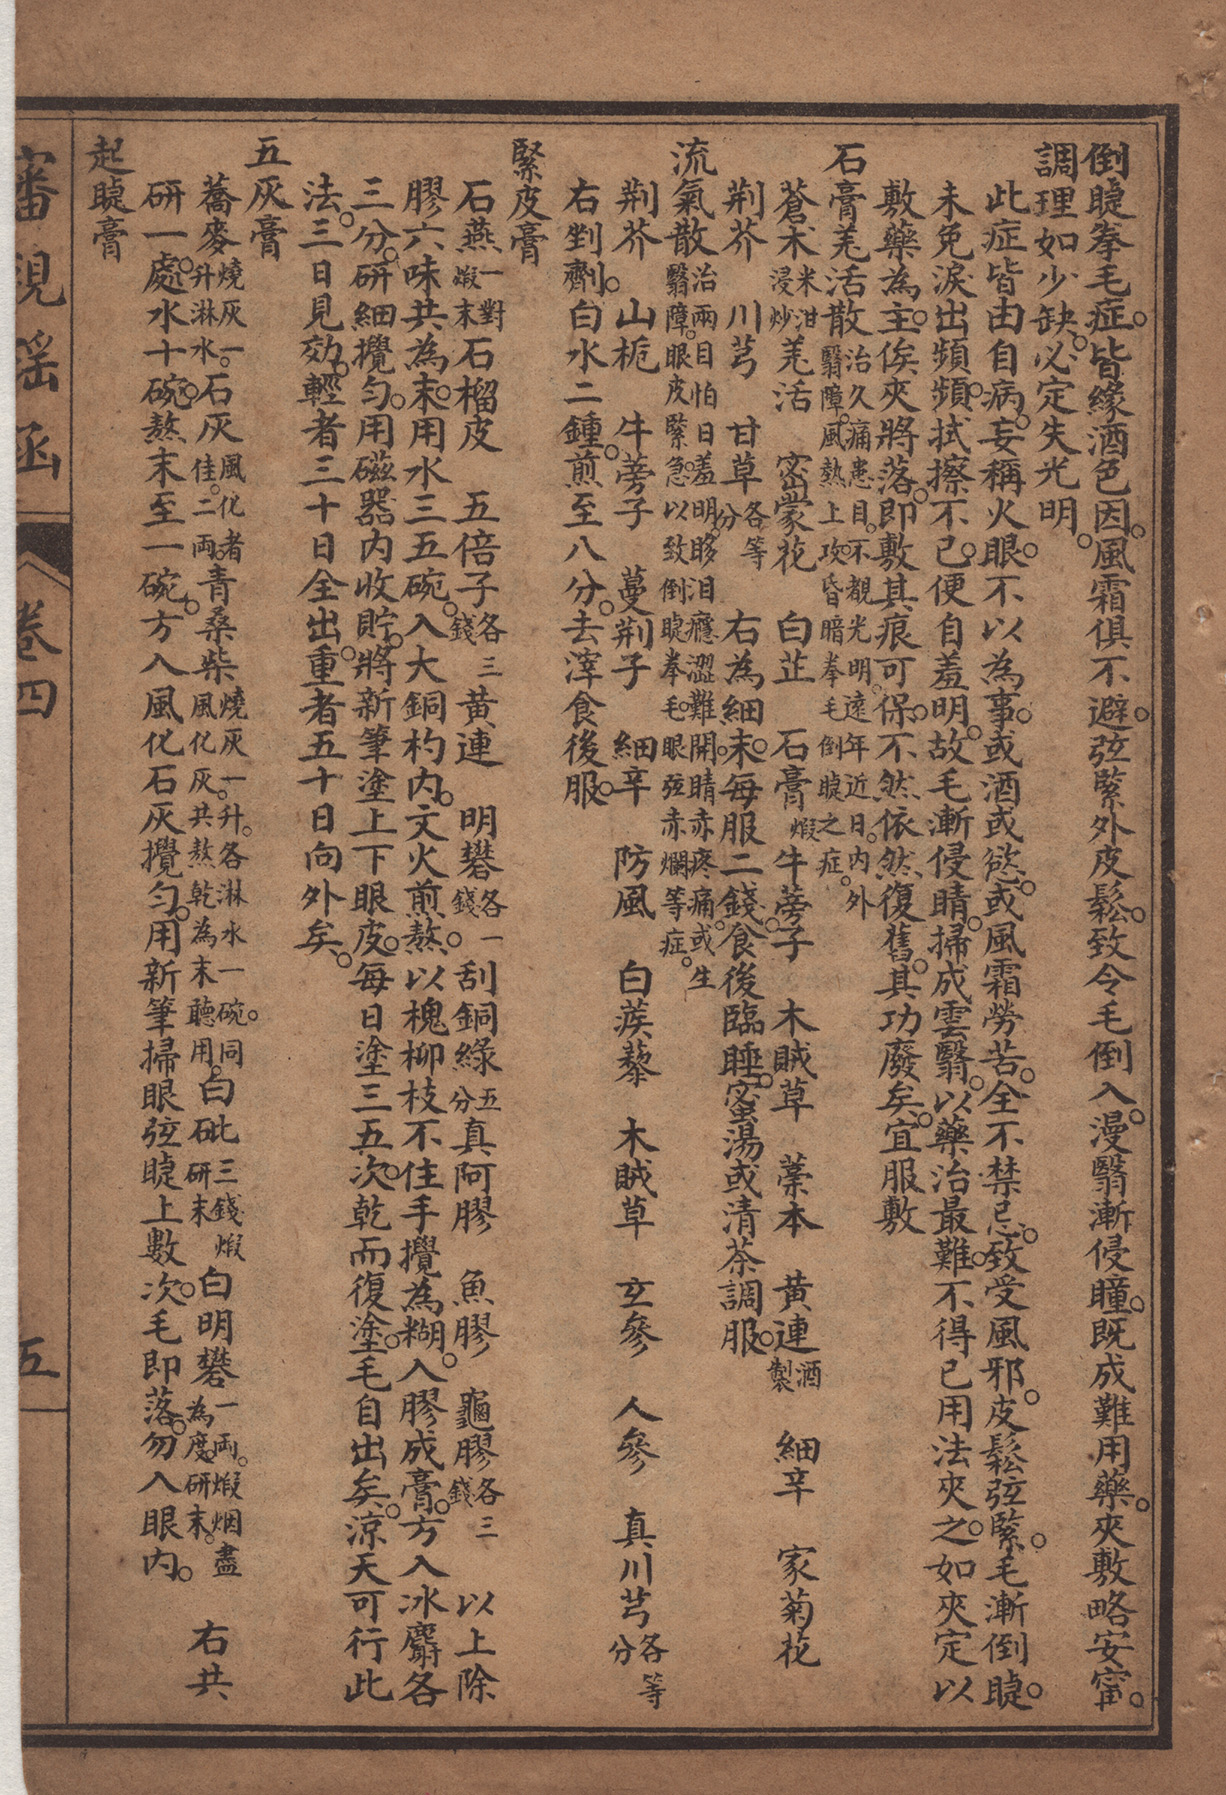 倒睫拳毛症。皆緣酒色因。風霜俱不避。弦緊外皮鬆。致令毛倒入。漫翳漸侵瞳。既成難用藥。夾敷略安甯。
調理如少缺。必定失光明。
此症皆由自病。妄稱火眼。不以為事。或酒或慾。或風霜勞苦。全不禁忌。致受風邪。皮鬆弦緊。毛漸倒睫。
未免淚出頻頻。拭擦不已。便自羞明。故毛漸侵睛。掃成雲翳。以藥治最難。不得已用法夾之。如夾定以
敷藥為主。俟夾將落。即敷其痕可保。不然依然復舊。其功廢矣。宜服敷
石膏羌活散 治久痛患目。不覩光明。遠年近日。內外翳障。風熱上攻。昏暗拳毛倒睫之症。
蒼朮米泔浸炒 羌活 密蒙花 白芷 石膏煅 牛蒡子 木賊草 藁本 黃連酒製 細辛 家菊花
荆芥 川芎 甘草各等分 右為細末。每服二錢。食後臨睡。蜜湯或清茶調服。
流氣散 治兩目怕日羞明。眵泪癮澀難開。睛赤疼痛。或生翳障。眼皮緊急。以致倒睫拳毛。眼弦赤爛等症。
荆芥 山梔 牛蒡子 蔓荆子 細辛 防風 白蒺藜 木賊草 玄參 人參 真川芎各等分
右剉劑。白水二鍾。煎至八分。去滓食後服。
緊皮膏
石燕一對煅末 石榴皮 五倍子各三錢 黃連 明礬各一錢 刮銅綠五分 真阿膠 魚膠 龜膠各三錢 以上除
膠六味共為末。用水三五碗。入大銅杓內。文火煎熬。以槐柳枝不住手攪為糊。入膠成膏。方入冰麝各
三分。研細攪勻。用磁器內收貯。將新筆塗上下眼皮。每日塗三五次。乾而復塗。毛自出矣。涼天可行此
法。三日見効。輕者三十日全出。重者五十日向外矣。
五灰膏
蕎麥燒灰一升淋水。 石灰風化者佳。二兩。 青桑柴燒灰一升。各淋水一碗。同風化灰。共熬乾為末聽用。 白砒三錢煅研末 白明礬一兩。煅烟盡為度。研末。 右共
研一處。水十碗。熬末至一碗。方入風化石灰攪勻。用新筆掃眼弦睫上數次。毛即落。勿入眼內。
起睫膏
審視瑤函
卷四
五